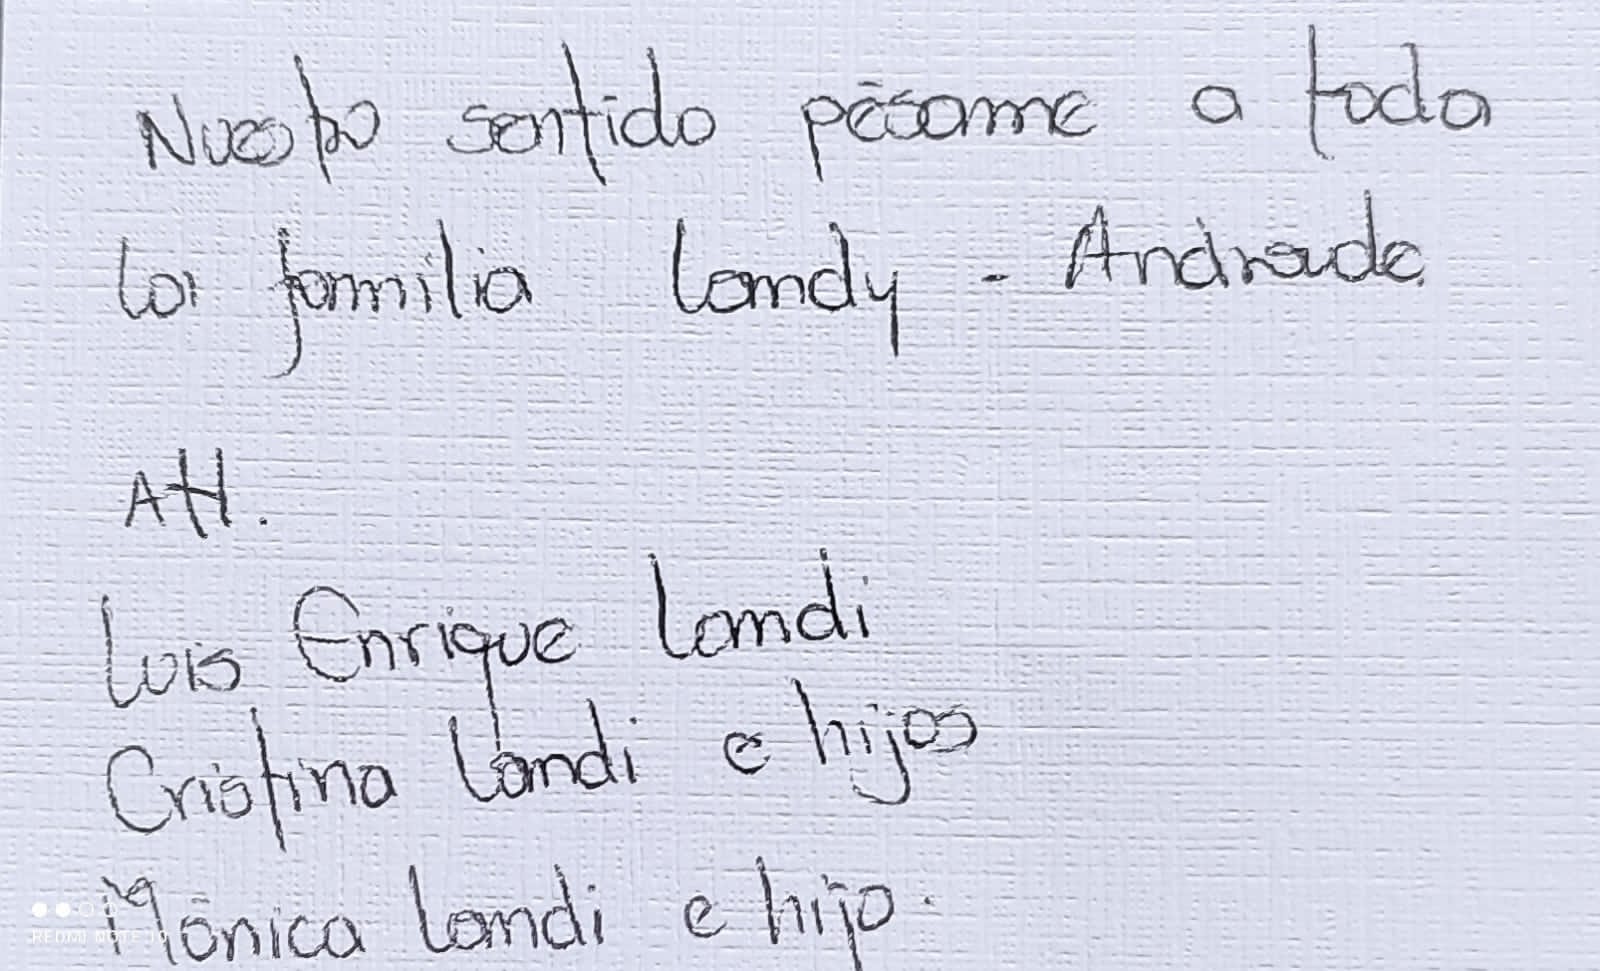 Nuestro sentido pésame a toda
la familia Landy - Andrade.
Att.
Luis Enrique Landi
Cristina Landi e hijos
Mónica Landi e hijo.
REDMI NOTE 10